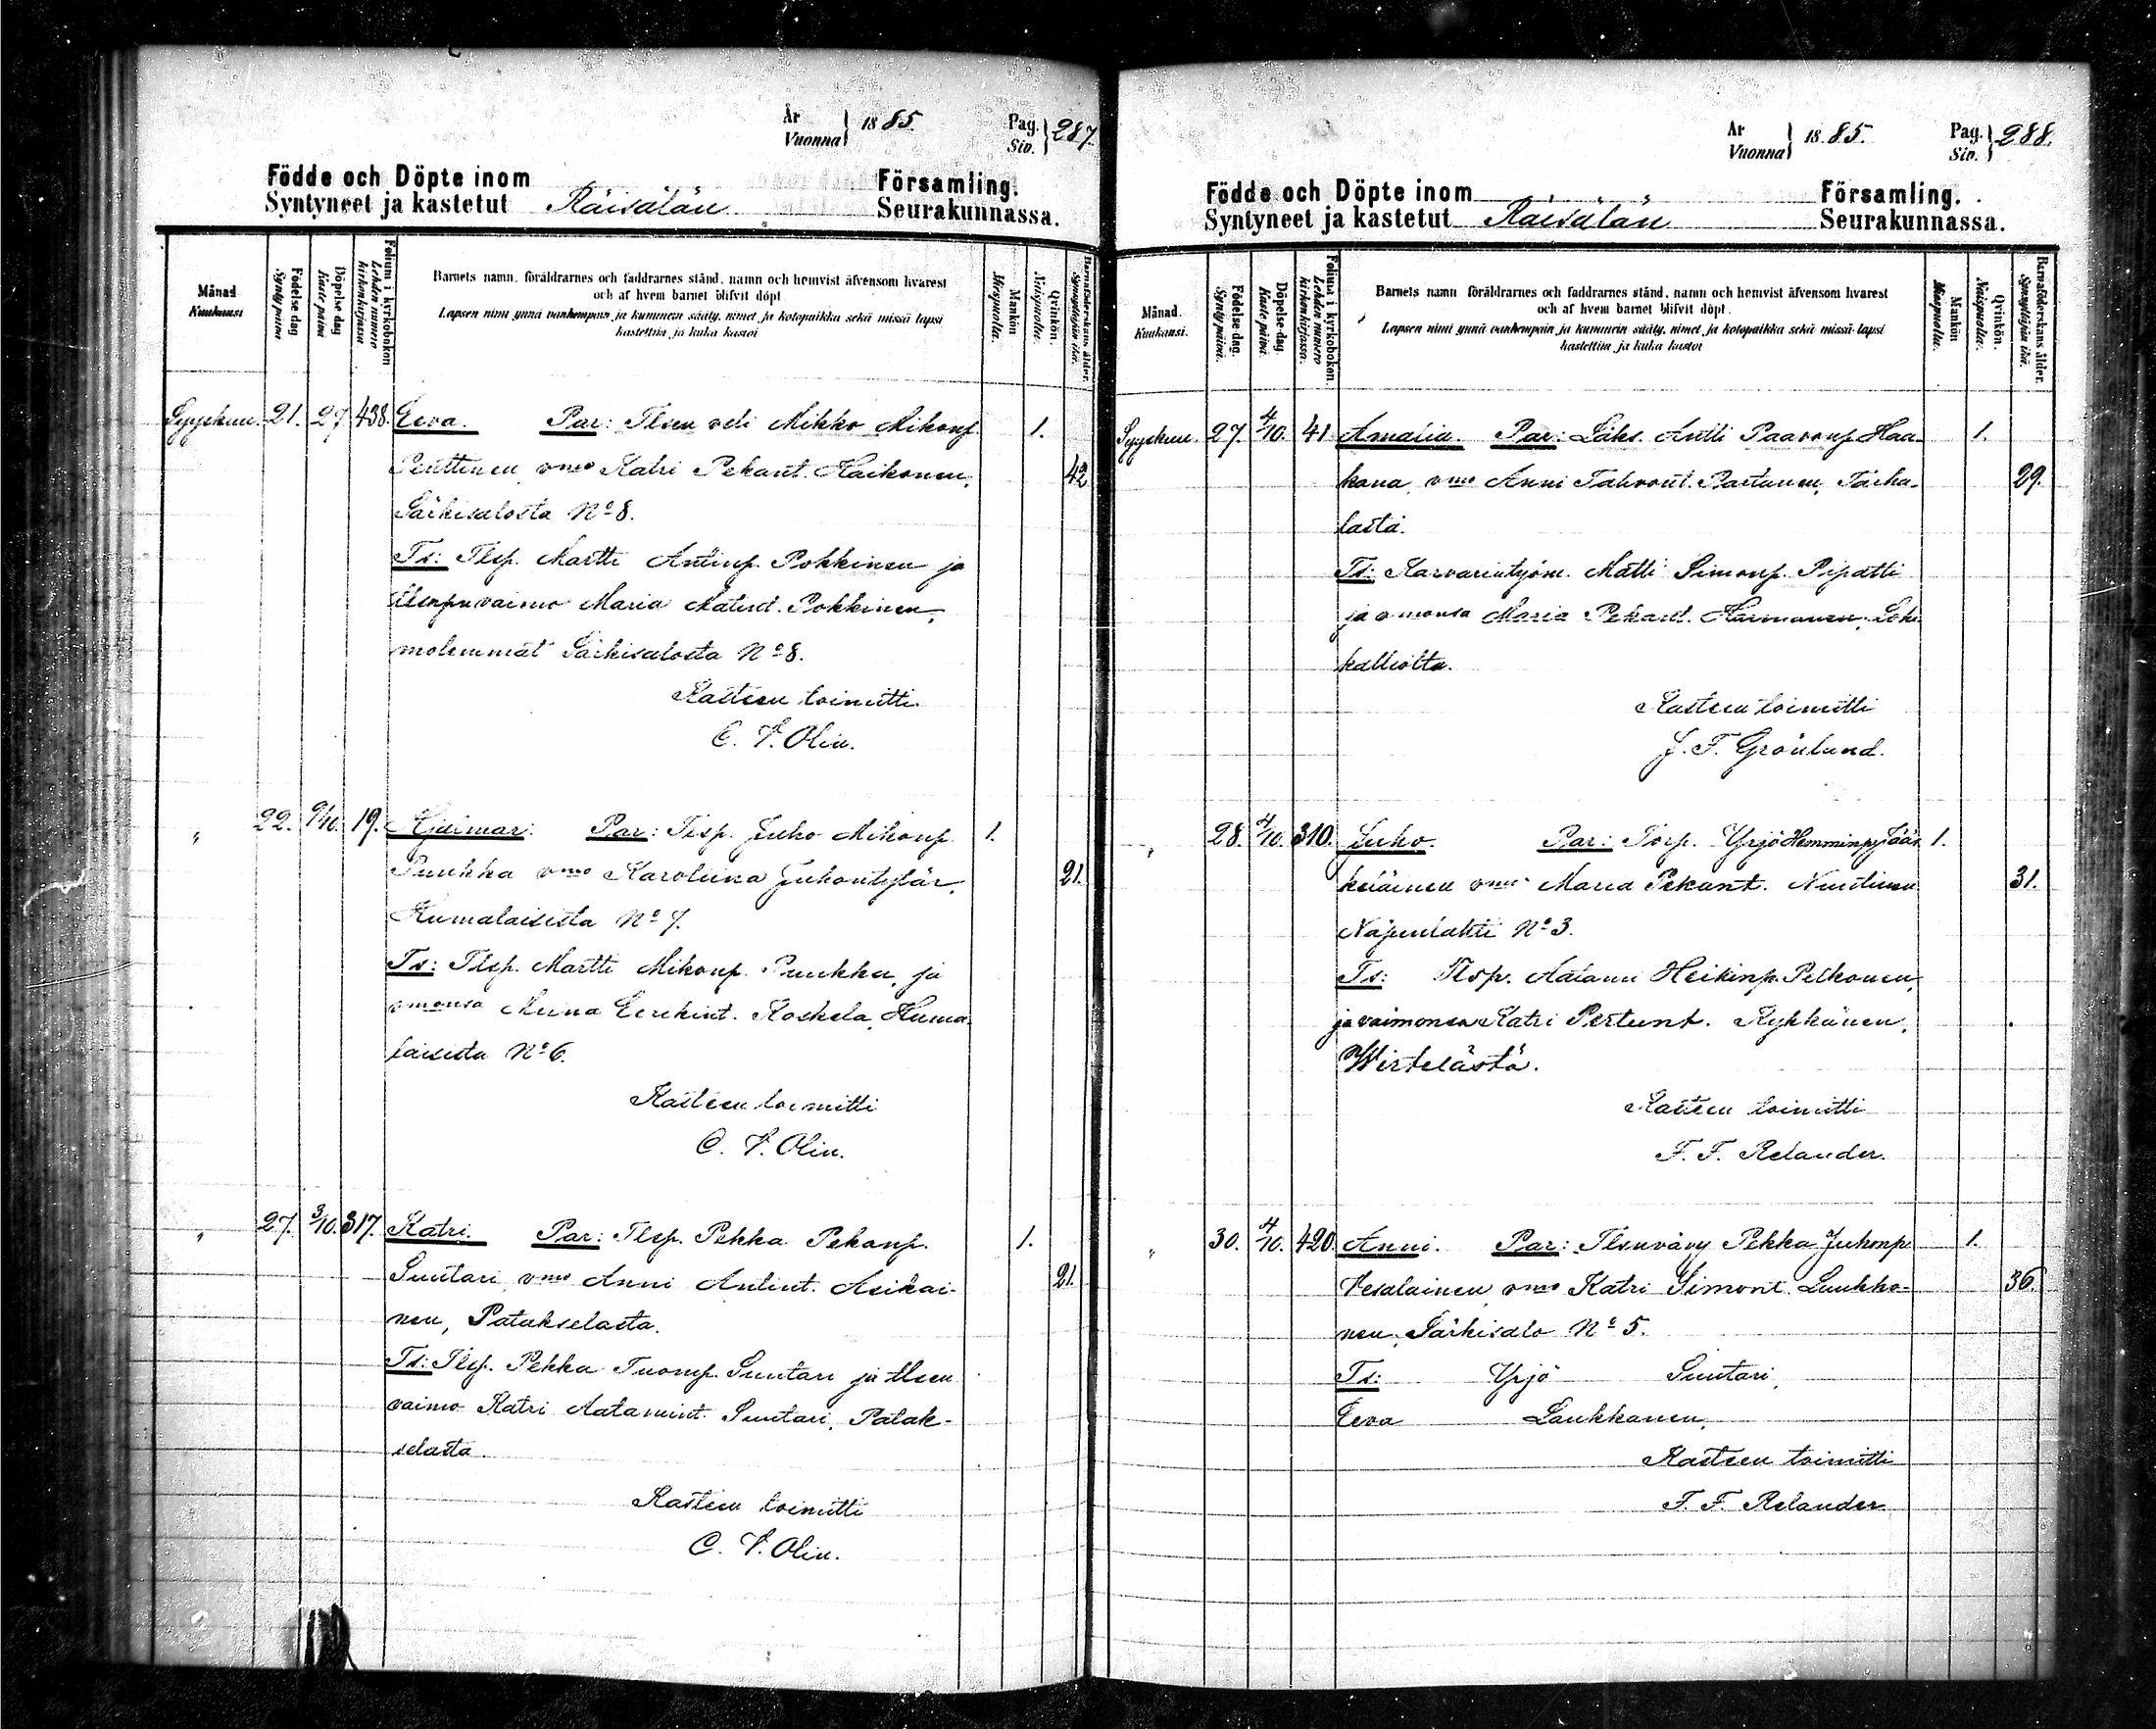 År
Vuonna } 1885. Pag. Siv. } 287.
Födde och Döpte inom Församling.
Syntyneet ja kastetut Räisälän Seurakunnassa.
Månad
Kuukausi
Födelse dag
Synty päivä
Döpelse dag
Kaste päivä
Folium i kyrkoboken
Lehden numero
kirkonkirjassa
Barnets namn, föräldrarnes och faddrarnes stånd, namn och hemvist äfvensom hvarest
och af hvem barnet blifvit döpt
Lapsen nimi ynnä vanhempain ja kummein sääty, nimet ja kotopaikka sekä missä lapsi
kastettiin ja kuka kastoi
Mankön
Miespuolia.
Qvinkön
Naispuolia.
Barnföderskans ålder.
Synnyttäjän ikä.
Syyskuu. 21. 27 438. Eeva. Par: Tlsen veli Mikko Mikonp. 1.
Penttinen, vmo Katri Pekant. Kaikonen, 42
Särkisalosta No 8.
Ts: Tlsp. Martti Antinp. Pokkinen ja
tlsenp:nvaimo Maria Matint. Pokkinen,
molemmat Särkisalosta No 8.
Kasteen toimitti
C. V. Olin.
" 22. 9/10. 19. Hjalmar. Par: Tlsp. Juho Mikonp. 1.
Puukka vmo Karoliina Juhontytär, 21.
Humalaisista No 7.
Ts: Tlsp. Martti Mikonp. Puukka, ja
vmonsa Miina Eerikint. Koskela, Huma-
laisista No 6.
Kasteen toimitti
C. V. Olin.
" 27. 3/10. 317. Katri. Par: Tlsp. Pekka Pekanp. 1.
Suutari, vmo Anni Antint. Asikai- 21.
nen, Patakselasta.
Ts: Tlsp. Pekka Tuomp. Suutari ja tlsen
vaimo Katri Aatamint. Suutari, Patak-
selasta.
Kasteen toimitti
C. V. Olin.
År
Vuonna } 1885. Pag. Siv. } 288.
Födde och Döpte inom Församling.
Syntyneet ja kastetut Räisälän Seurakunnassa.
Månad.
Kuukausi.
Födelse dag.
Synty päivä.
Döpelse dag.
Kaste päivä.
Folium i kyrkoboken.
Lehden numero
kirkonkirjassa.
Barnets namn föräldrarnes och faddrarnes stånd, namn och hemvist äfvensom hvarest
och af hvem barnet blifvit döpt.
Lapsen nimi ynnä vanhempain ja kummein sääty, nimet ja kotopaikka sekä missä lapsi
kastettiin ja kuka kastoi
Mankön
Miespuolia.
Qvinkön.
Naispuolia.
Barnaföderskans ålder.
Synnyttäjän ikä.
Syyskuu. 27. 4/10. 41. Amalia. Par: Läks. Antti Paavonp. Haa- 1.
kana, vmo Anni Tahvont. Partanen, Tarha- 29.
lasta.
Ts: Karvarintyöm. Matti Simonp. Pipatti
ja vmonsa Maria Pekant. Harmonen, Lohi
kalliolta.
Kasteen toimitti
J. F. Grönlund.
" 28. 4/10. 310. Juho. Par: Torp. Yrjö Hemminp. Jääs 1.
keläinen vmo Maria Pekant. Nuutinen 31.
Näpinlahti No 3.
Ts: Tlsp. Aatami Heikinp. Pelkonen,
ja vaimonsa Katri Pertunt. Kykkänen,
Wirtelästä.
Kasteen toimitti
F. F. Relander.
" 30. 4/10. 420. Anni. Par: Tlsenvävy Pekka Juhonp. 1.
Vesalainen, vmo Katri Simont. Laukka- 36.
nen, Särkisalo No 5.
Ts: Yrjö Suutari,
Eeva Laukkanen,
Kasteen toimitti
F. F. Relander